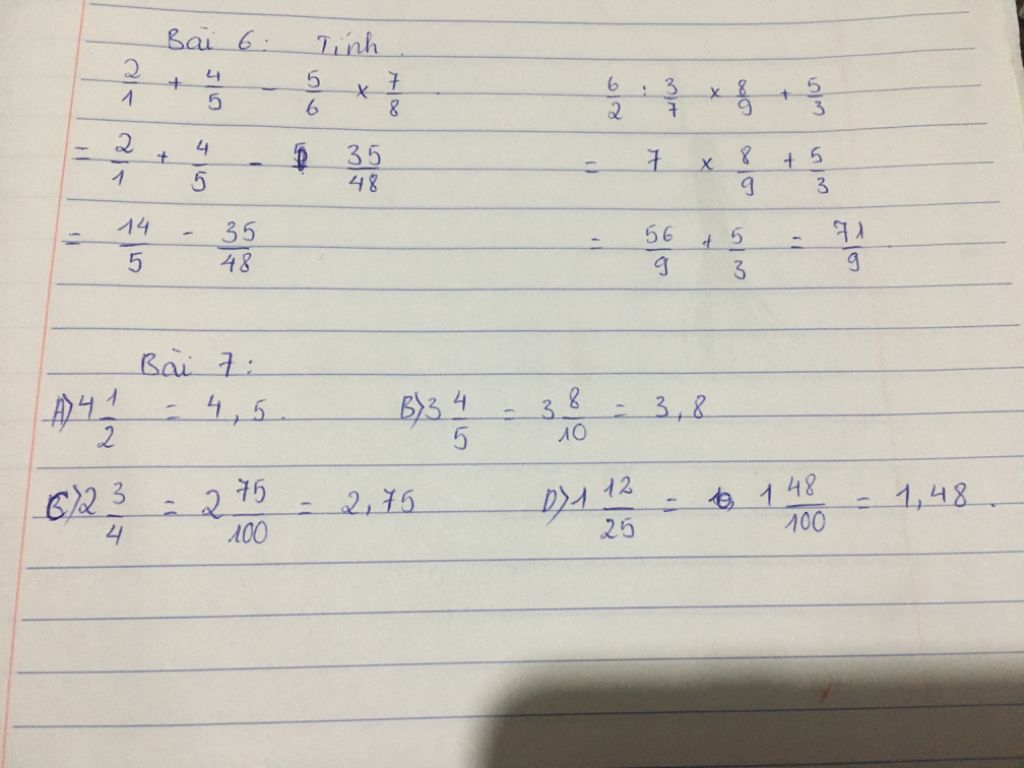 Bài 6: Tính.
2/1 + 4/5 - 5/6 x 7/8 6/2 : 3/7 x 8/9 + 5/3
= 2/1 + 4/5 - 35/48 = 7 x 8/9 + 5/3
= 14/5 - 35/48 = 56/9 + 5/3 = 71/9
Bài 7:
A) 4 1/2 = 4,5. B) 3 4/5 = 3 8/10 = 3,8
C) 2 3/4 = 2 75/100 = 2,75 D) 1 12/25 = 1 48/100 = 1,48.